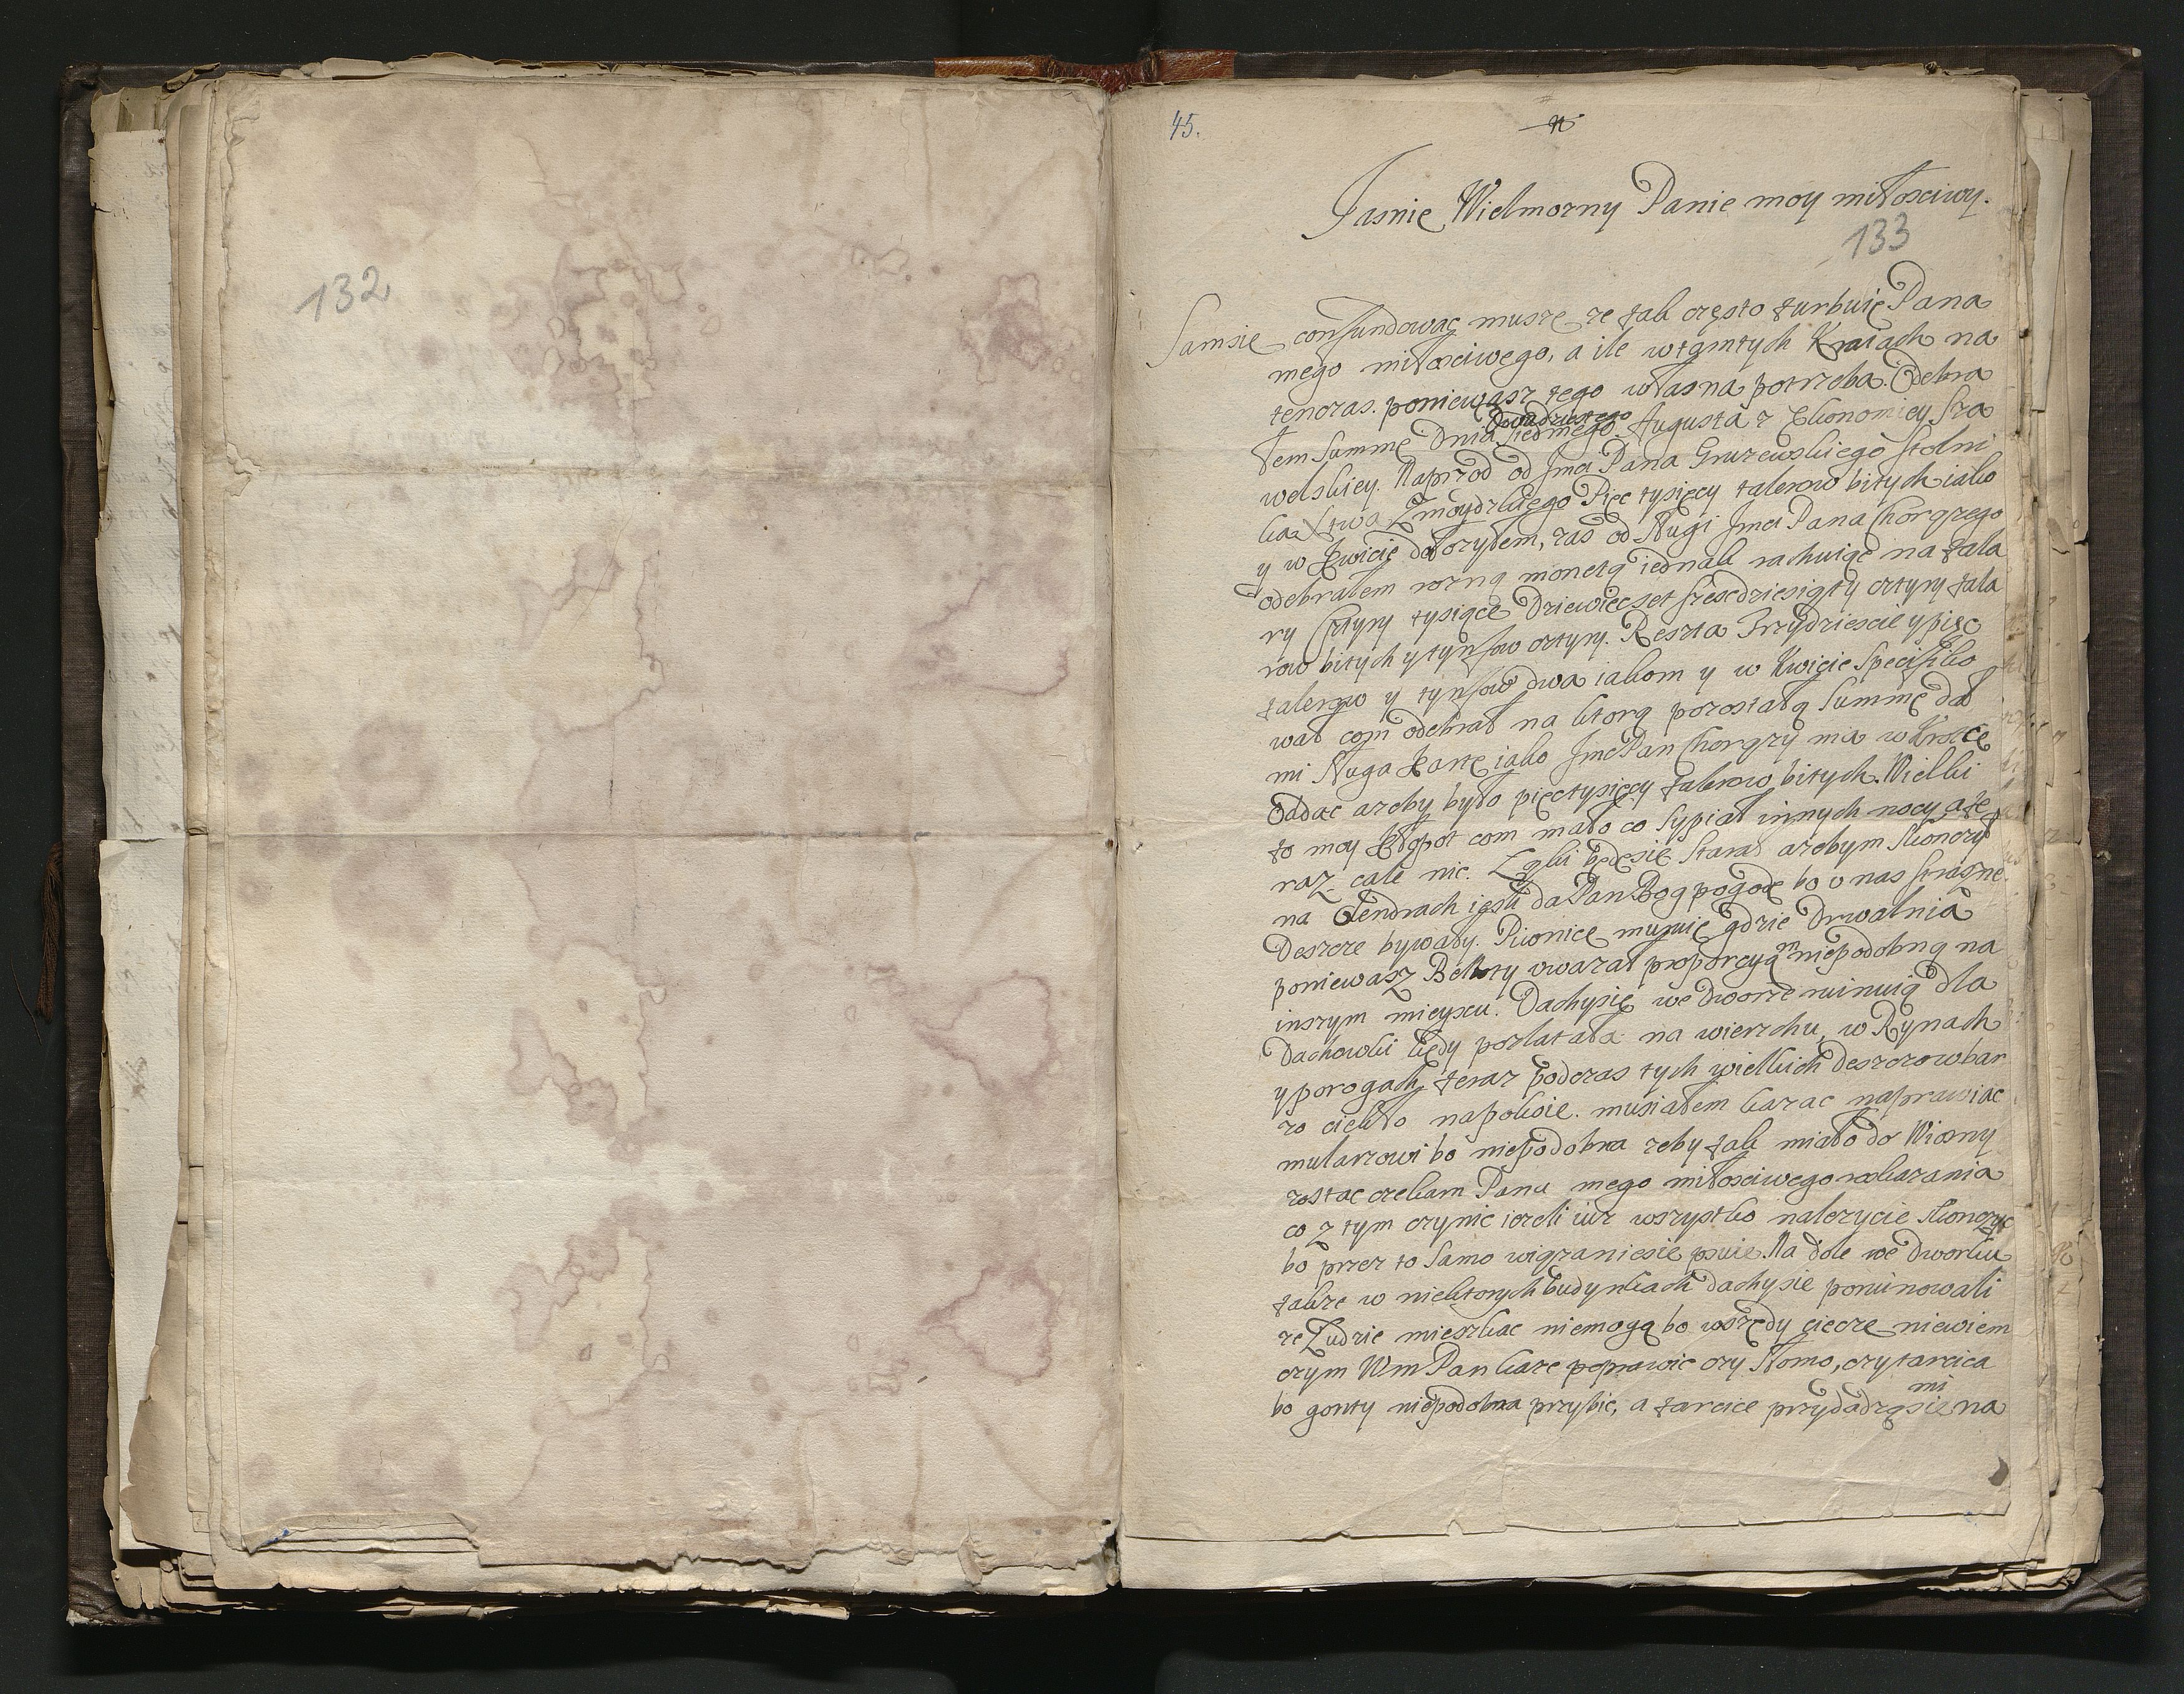 132
45.
Jasnie Wielmozny Panie moy miłosciwy.
133
Samsie confundowac muszę ze tak często turbuię Pana
mego miłosciwego, a ile wtamtych Kraiach na
tenczas. poniewasz tego własna potrzeba. Odebra
łem Summę Dnia Siedmego Augusta z Ekonomiey Sza
Dwudziestego
welskiey. Naprzod od Jmci Pana Gruzewskiego Stolni
ka Xtwa Zmoydzkiego Pięc tysięcy talerow bitych iako
y w Kwicie dołozyłem, zas od Sługi Jmci Pana Chorązego
odebrałem rozną monetą iednak rachuiąc na tala
ry Cztyry tysiące Dziewiecset szescdziesiąty cztyry tala
row bitych y tynfow cztyry. Reszta Trzydziescie y pięc
talerow y tynfow dwa iakom y w Kwicie Specifiko
wał com odebrał na ktorą pozostałą Summę dał
mi Sługa Kartę iako Jmc Pan Chorązy ma w Krotce
Oddac azeby było pięctysięcy talerow bitych. Wielki
to moy Kłopot com mało co Sypiał innych nocy a te
raz cale nic. Zęby będęsie starał azebym skonczył
na Dendrach iesli da Pan Bog pogodę bo u nas strasne
Deszcze bywały. Piwnice muruię gdzie Drwalnia
poniewasz Belloty uwazał proporcyą niepodobną na
inszym mieyscu. Dachysię we Dworze ruinuią dla
Dachowki kiędy pozlatała na wierzchu, w Rynach
y porogach teraz podczas tych wielkich deszczow bar
zo ciekło napokoie. musiałem kazac naprawiac
mularzowi bo niepodobna zeby tak miało do Wiosny
zostac czekam Pana mego miłosciwego rozkazania
co z tym czynic iezeli iuz wszystko nalezycie skonczyc
bo przez to Samo wiązaniesie psuie. Na dole we dworku
takze w niektorych budynkach dachysie poruinowali
ze Ludzie mieszkac niemogą bo wszędy ciecze niewiem
czym Wm Pan kaze poprawic czy Słomo, czy tarcica
mi
bo gonty niepodobna przybic, a tarcice przydadząsie na